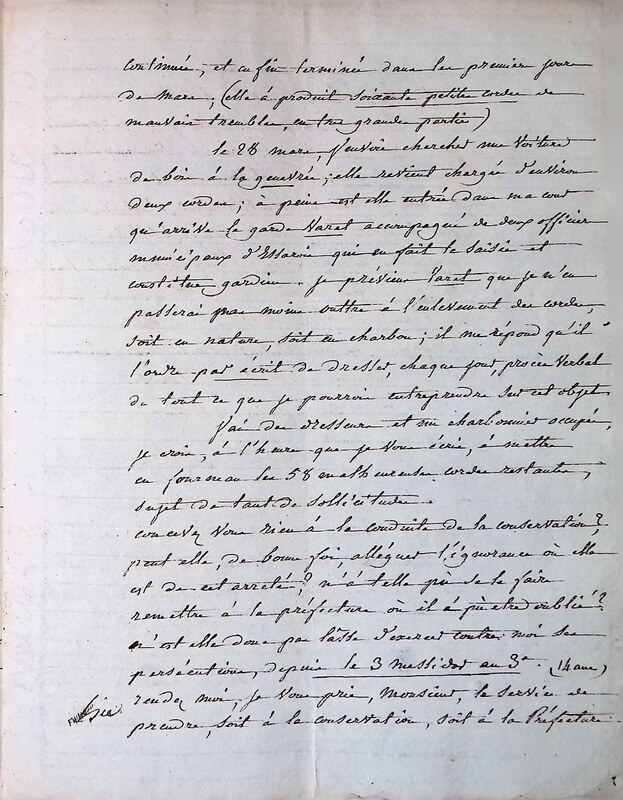 continuée, et enfin terminée dans les premier jours
de mars, (elle à produit soixante petites cordes de
mauvais trembles, en tres grande partie)
le 28 mars, j'envoie chercher une voiture
de bois à la genevrie; elle revient chargée d'environ
deux cordes; à peine est elle entrée dans ma cour
qu'arrive le garde Varet accompagné de deux officier
municipaux d'Essarois qui en fait la saisie et
constitue gardien. je préviens Varet que je n'en
passerai pas moins outtre à l'enlevement des cordes,
soit en nature, soit en charbon; il me répond qu'il à
l'ordre par écrit de dresser, chaque jour, procès verbal
de tout ce que je pourrois entreprendre sur cet objet.
j'ai des dresseurs et un charbonnier occupés,
je crois, à l'heure que je vous écris, à mettre
en fourneau les 58 malheureuses cordes restantes,
sujet de tant de sollicitudes.
concevez vous rien à la conduite de la conservation?
peut elle, de bonne foi, alléguer l'ignorance où elle
est de cet arreté? n'à telle pu se le faire
remettre à la préfecture où il à pu etre oublié?
n'est elle donc pas lasse d'exercer contre moi ses
persécutions, depuis le 3 messidor an 3e. (14 ans)
rendez moi, je vous prie, Monsieur, le service de
prendre, soit à la conservation, soit à la Préfecture